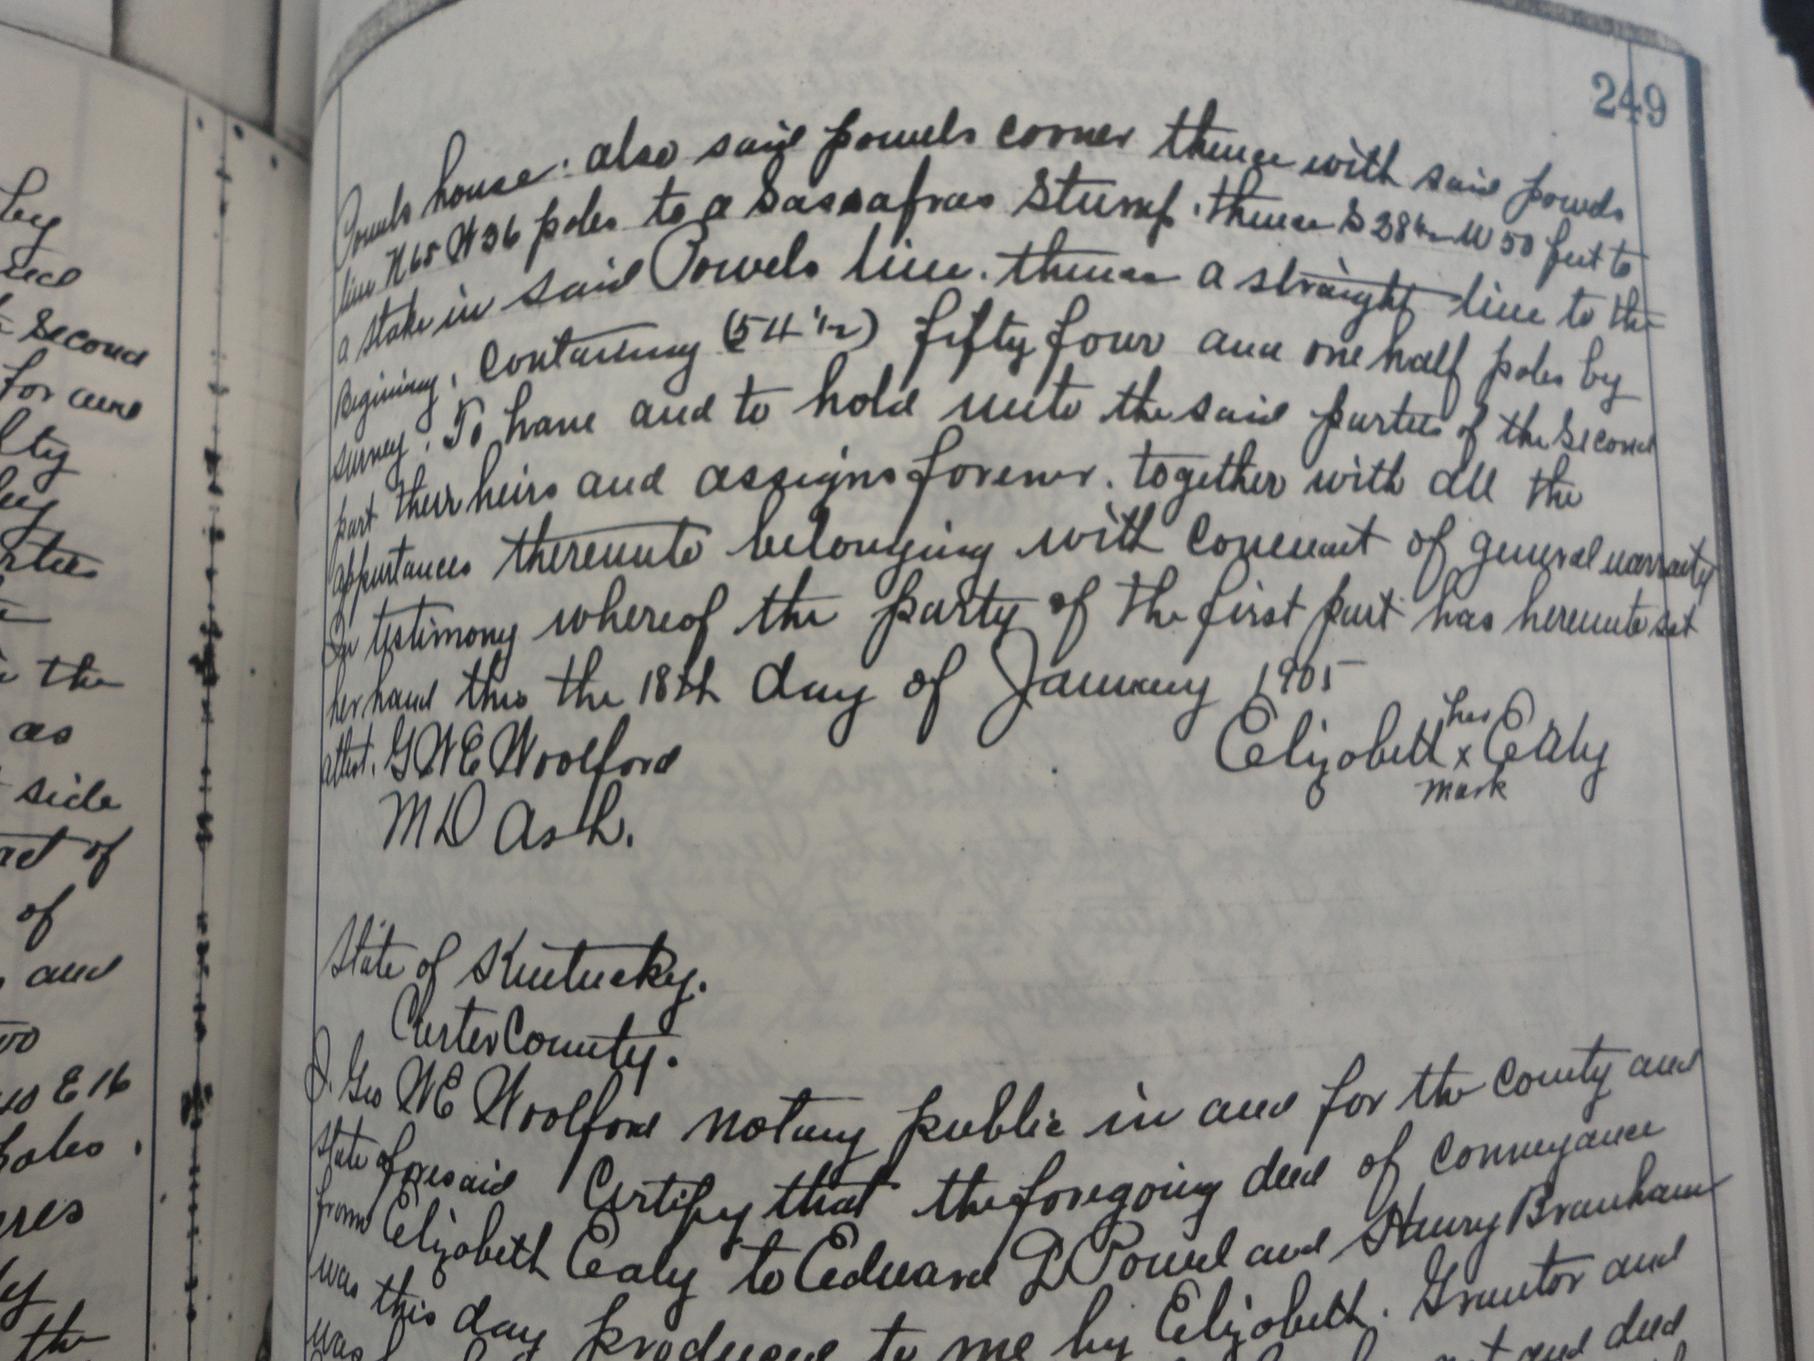 249
Powels house. also said powels corner thence with said powels
line N 65 W 36 poles to a Sassafras Stump. thence S 28 1/2 W 50 feet to
a stake in said Powels line. thence a straight line to the
Begining. Containing (54 1/2) fifty four and one half poles by
survey. To have and to hold unto the said parties of the Second
part their heirs and assigns forever. together with all the
appurtances thereunto belonging with Covenant of general warranty
In testimony whereof the party of the first part has hereunto set
her hand this the 18th day of January 1905
attest. G W E Woolford
Elizobeth her x mark Ealy
M D Ash.
State of Kentucky.
Carter County.
I. Geo W E Woolford notary public in and for the County and
State aforesaid Certify that the foregoing deed of Conveyance
from Elizobeth Ealy to Edward D Powel and Henry Branham
was this day produced to me by Elizobeth. Grantor and
was and deed
by
Second
for and
lty
rties
the
as
side
act of
of
and
E 16
poles.
the